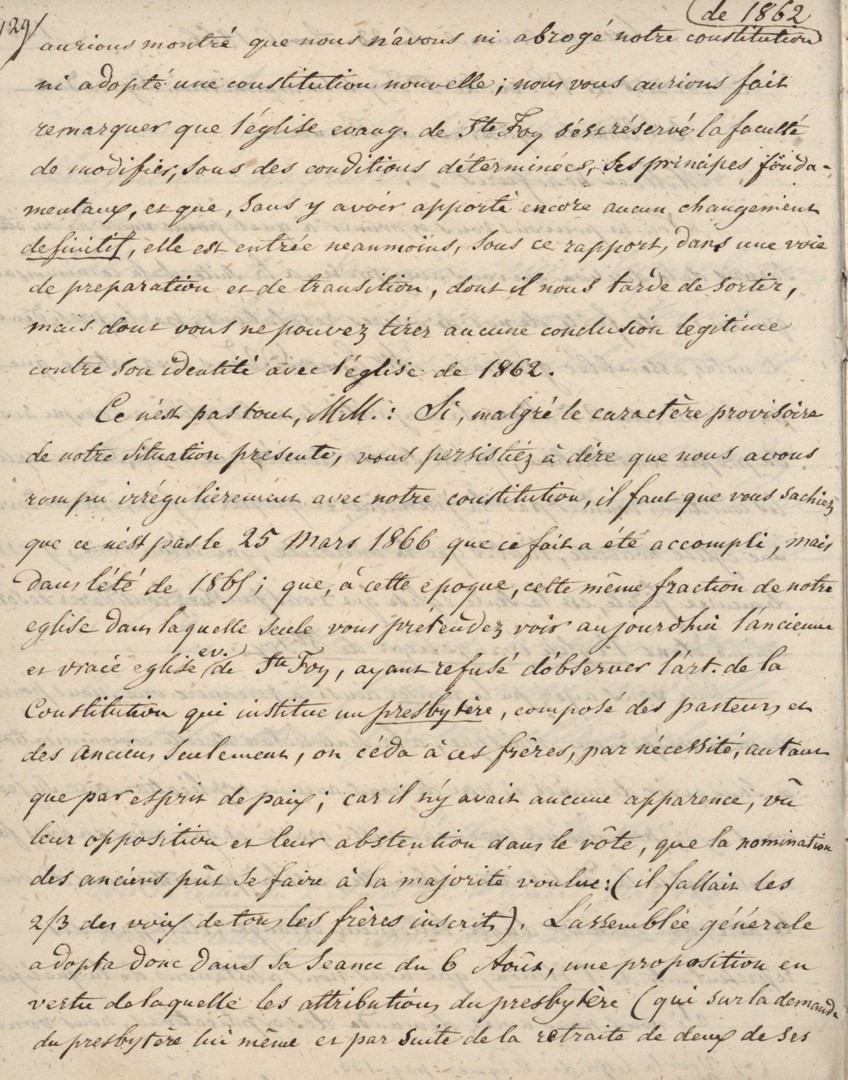 129/
(de 1862
aurions montré que nous n'avons ni abrogé notre constitution)
ni adopté une constitution nouvelle ; nous vous aurions fait
remarquer que l'église evang. de Ste Foy s'est réservé la faculté
de modifier, sous des conditions déterminées, ses principes fonda-
mentaux, et que, sans y avoir apporté encore aucun changement
definitif, elle est entrée neanmoins, sous ce rapport, dans une voie
de preparation et de transition, dont il nous tarde de sortir,
mais dont vous ne pouvez tirer aucune conclusion legitime
contre son identité avec l'église de 1862.
Ce n'est pas tout, M.M. : Si, malgré le caractère provisoire
de notre situation presente, vous persistiez à dire que nous avons
rompu irrégulièrement avec notre constitution, il faut que vous sachiez
que ce n'est pas le 25 Mars 1866 que ce fait a été accompli, mais
dans l'été de 1865 ; que, à cette epoque, cette même fraction de notre
eglise dans laquelle seule vous prétendez voir aujourd'hui l'ancienne
et vraie eglise ev. de Ste Foy, ayant refusé d'observer l'art. de la
Constitution qui institue un presbytère, composé des pasteurs et
des anciens seulement, on céda à ces frères, par nécessité, autant
que par esprit de paix ; car il n'y avait aucune apparence, vû
leur opposition et leur abstention dans le vôte, que la nomination
des anciens pût se faire à la majorité voulue : (il fallait les
2/3 des voix de tous les frères inscrits). L'assemblée générale
adopta donc dans sa seance du 6 Août, une proposition en
vertu de laquelle les attributions du presbytère (qui sur la demande
du presbytère lui même et par suite de la retraite de deux de ses